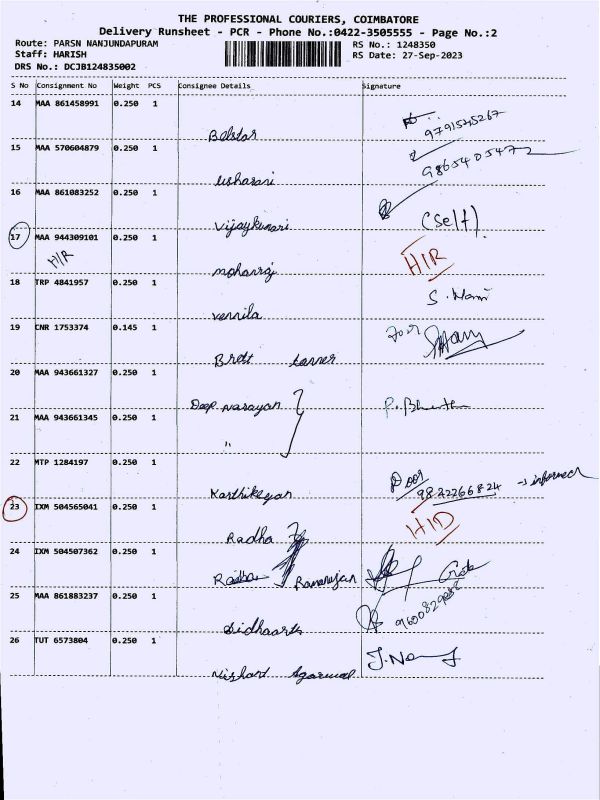 THE PROFESSIONAL COURIERS, COIMBATORE
Delivery Runsheet - PCR - Phone No.:0422-3505555 - Page No.:2
Route: PARSN NANJUNDAPURAM RS No.: 1248350
Staff: HARISH RS Date: 27-Sep-2023
DRS No.: DCJB124835002
S No Consignment No Weight PCS Consignee Details Signature
14 MAA 861458991 0.250 1
Belstar 9791545267
15 MAA 570604879 0.250 1
usharani 9865405472
16 MAA 861083252 0.250 1
Vijaykumari (Self).
17 MAA 944309101 0.250 1
H/R mohanraj H/R
18 TRP 4841957 0.250 1
vennila S. Mani
19 CNR 1753374 0.145 1
Brett Lanner
20 MAA 943661327 0.250 1
Deep Narayan
21 MAA 943661345 0.250 1
"
22 MTP 1284197 0.250 1
Karthikeyan Door 9822266824 → informed
23 IXM 504565041 0.250 1
Radha H/D
24 IXM 504507362 0.250 1
Radha Ramanujan
25 MAA 861883237 0.250 1
Sidhaarth
26 TUT 6573804 0.250 1
Nishant Agarwal